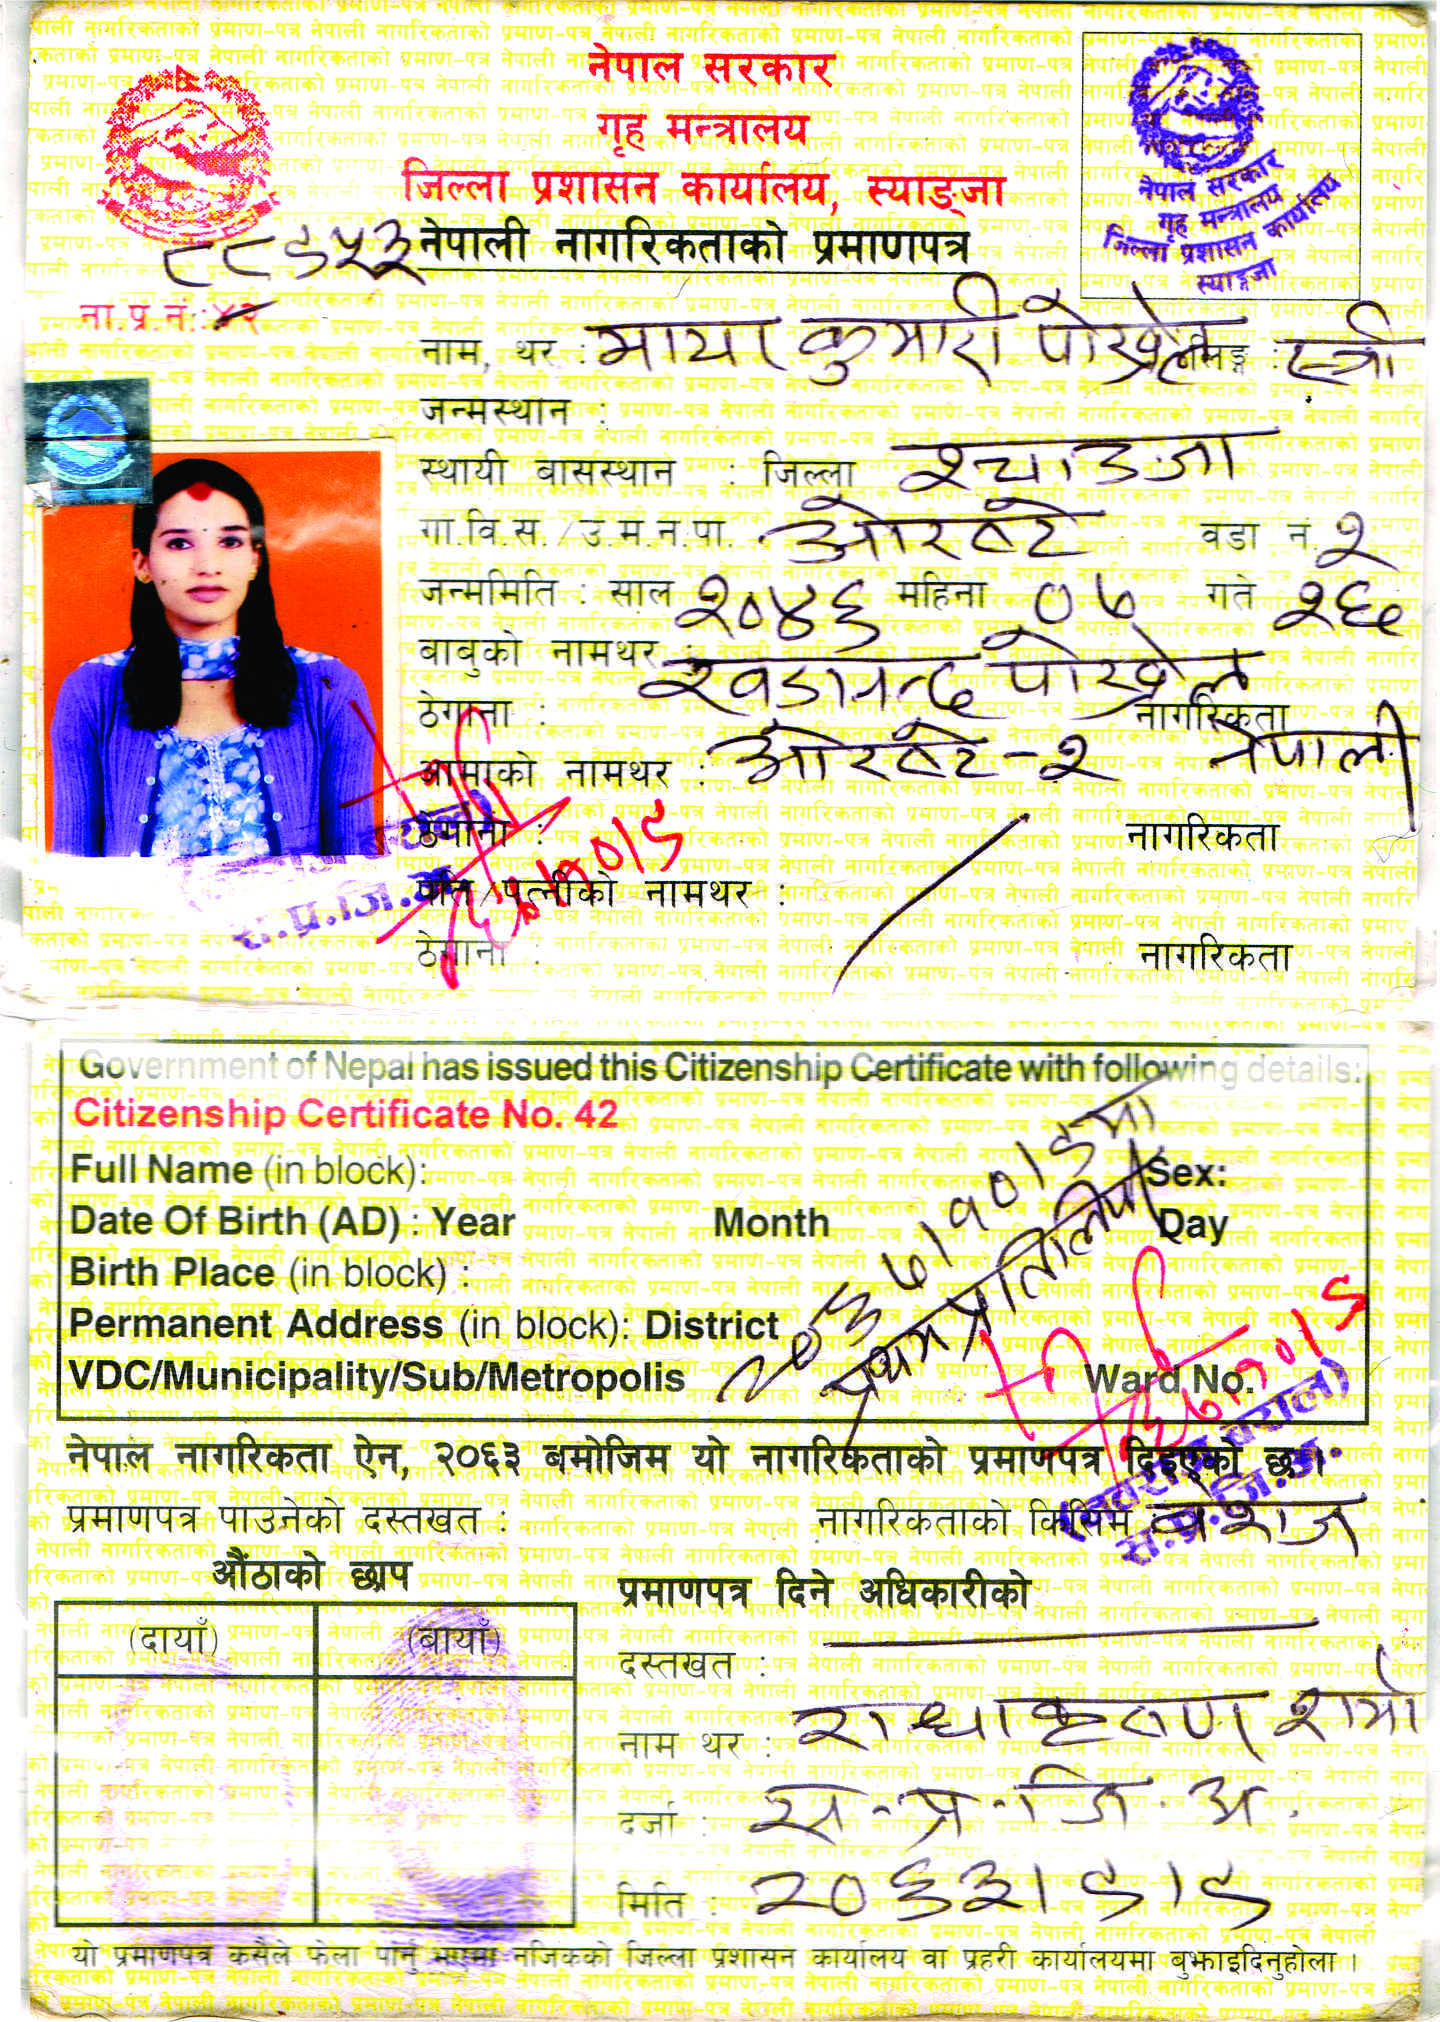 नेपाल सरकार
गृह मन्त्रालय
जिल्ला प्रशासन कार्यालय, स्याङ्जा
नेपाली नागरिकताको प्रमाणपत्र
नेपाल सरकार
गृह मन्त्रालय
जिल्ला प्रशासन कार्यालय
स्याङ्जा
ना.प्र.नं.:४२
नाम, थर : माया कुमारी पोख्रेल लिङ्ग : स्त्री
जन्मस्थान :
स्थायी बासस्थान : जिल्ला स्याङजा
गा.वि.स./उ.म.न.पा. वडा नं. २
जन्ममिति : साल २०४६ महिना ०७ गते २६
बाबुको नामथर : खडानन्द पोख्रेल
ठेगाना : नागरिकता
आमाको नामथर : नेपाली
ठेगाना : नागरिकता
पति/पत्नीको नामथर :
ठेगाना : नागरिकता
स.प्र.जि.अ.
Government of Nepal has issued this Citizenship Certificate with following details:
Citizenship Certificate No. 42
Full Name (in block): Sex:
Date Of Birth (AD) : Year Month Day
Birth Place (in block) :
Permanent Address (in block): District
VDC/Municipality/Sub/Metropolis Ward No.
प्रतिलिपी
नेपाल नागरिकता ऐन, २०६३ बमोजिम यो नागरिकताको प्रमाणपत्र दिइएको छ।
प्रमाणपत्र पाउनेको दस्तखत : नागरिकताको किसिम : वंशज
स.प्र.जि.अ.
औंठाको छाप
(दायाँ) (बायाँ)
प्रमाणपत्र दिने अधिकारीको
दस्तखत :
नाम थर : राधाकृष्ण शर्मा
दर्जा : स.प्र.जि.अ.
मिति : २०६३।९।९
यो प्रमाणपत्र कसैले फेला पार्नु भएमा नजिकको जिल्ला प्रशासन कार्यालय वा प्रहरी कार्यालयमा बुझाइदिनुहोला ।